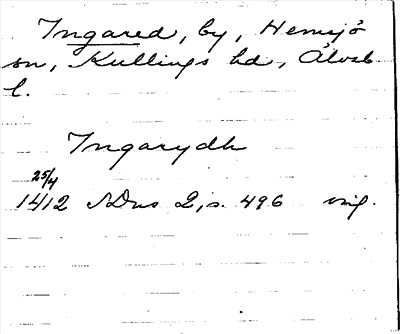 Ingared, by, Hemsjö
sn, Kullings hd, Älvsb
l.
Ingarydh
25/4
1412 SDns 2, s. 496 orig.